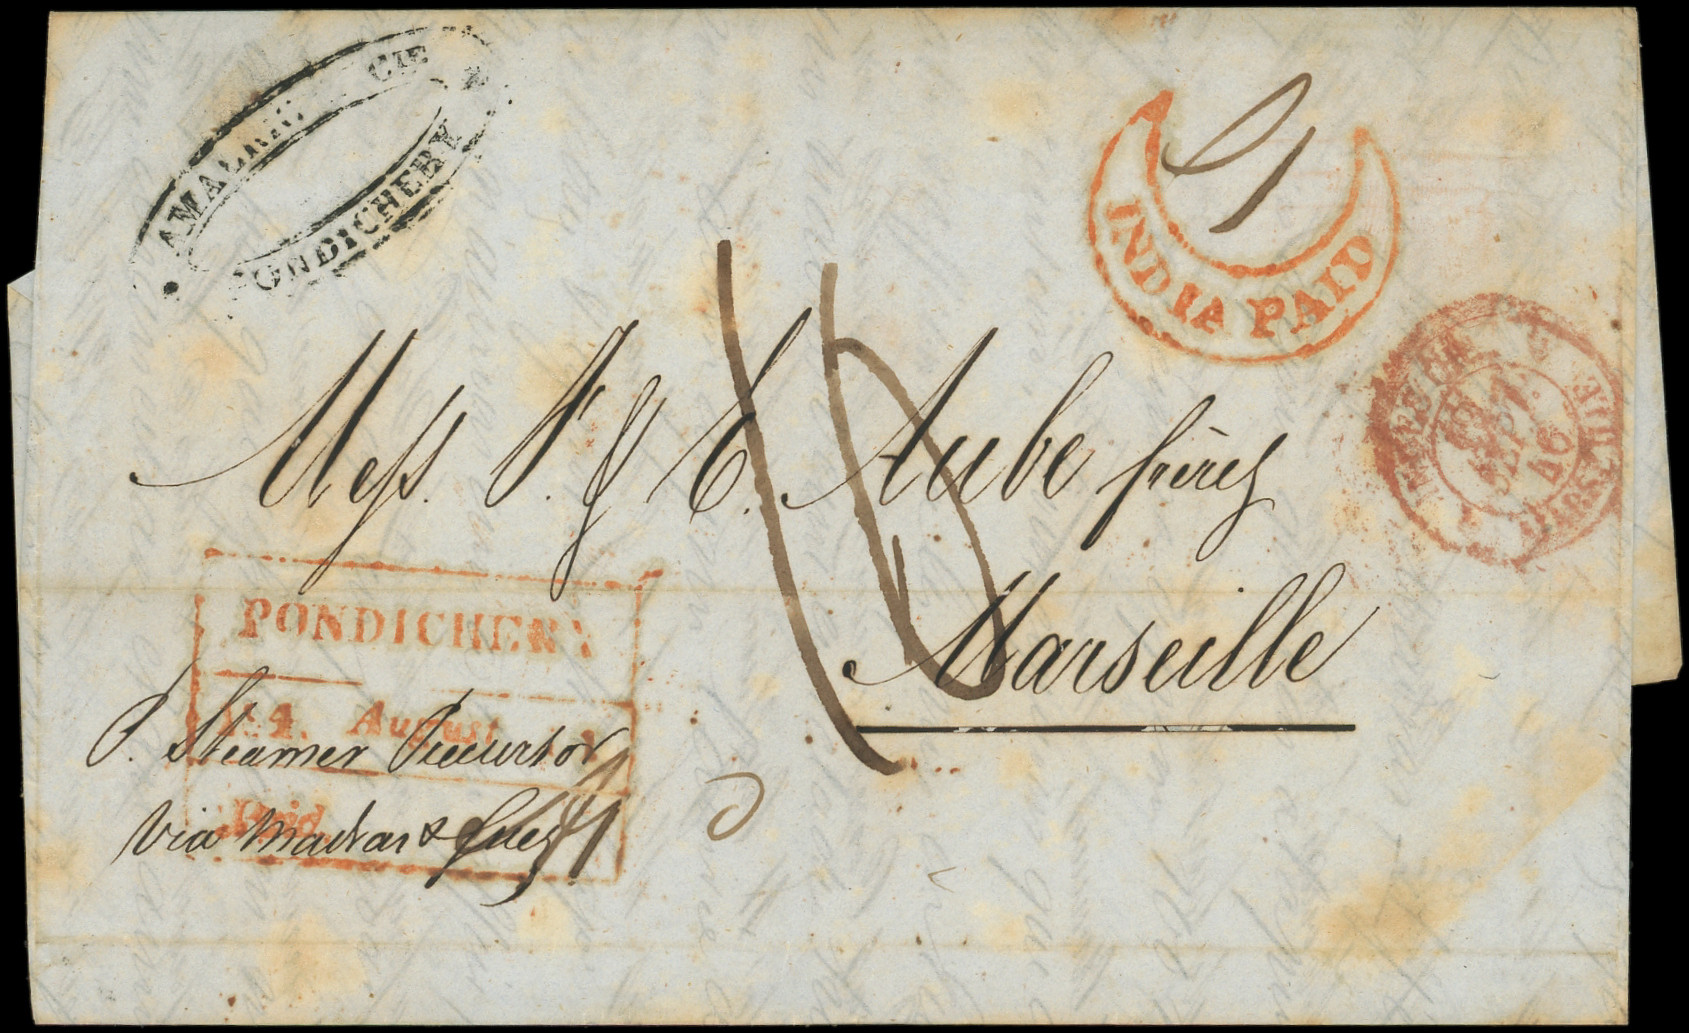 AMALRIC CIE
PONDICHERY
INDIA PAID
Mess. V. & E. Aube frères
Marseille
PONDICHERY
14. August
Paid
P. Steamer Precursor
via Madras & Suez
SEPT
46